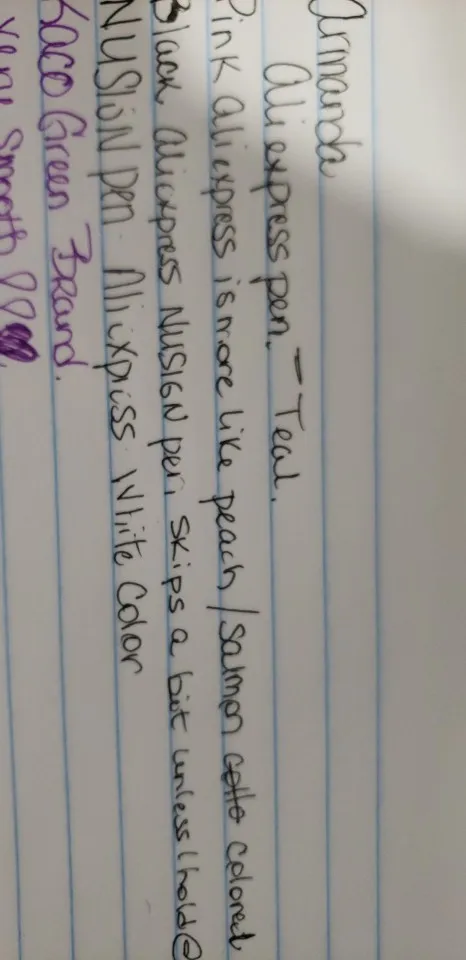 Armanda
Aliexpress pen. - Teal.
Pink aliexpress is more like peach/salmon colored
Black aliexpress NUSIGN pen, skips a bit unless I hold @
NUSIGN pen. Aliexpress. White Color
Kaco Green Brand.
very smooth